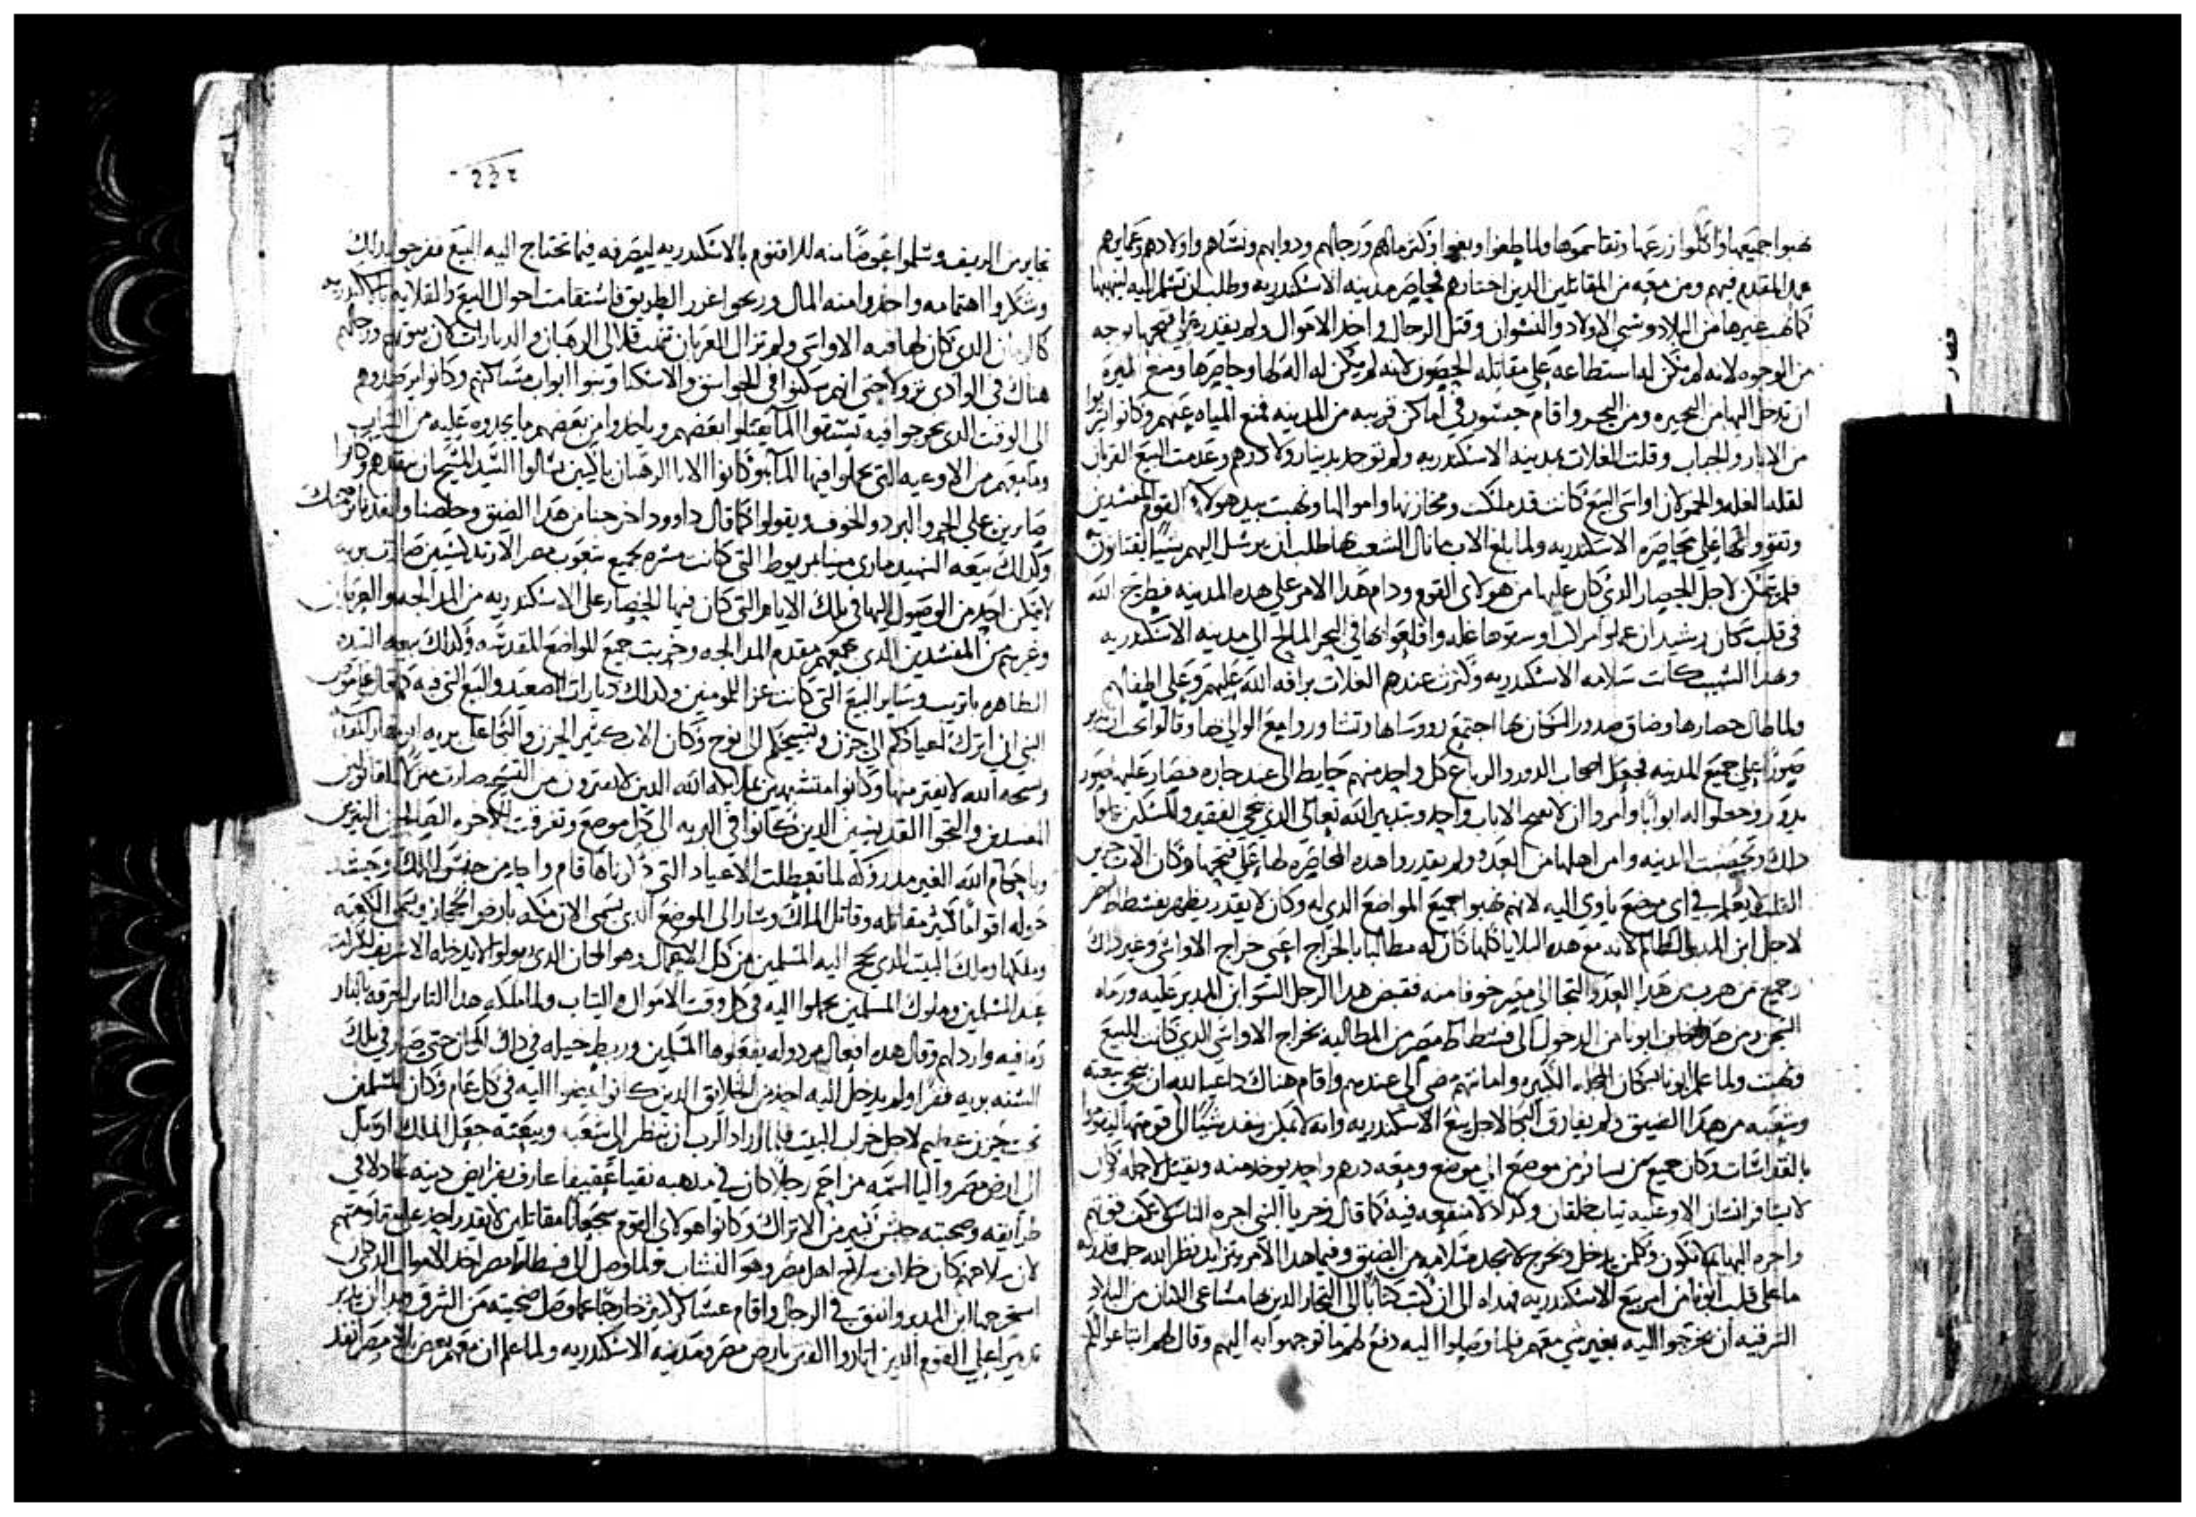 نهبوا جميعها واكلوا زرعها وتقاسموها ولما طغوا وبغوا وكثر مالهم ورجالهم ودوابهم ونساهم واولادهم
المقدم فيهم ومن معه من المقاتلين الدين اختارهم لحاصر مدينه الاسكندريه وطلب ان تسلم اليه لينهبها
كما نهب غيرها من البلاد وسبي الاولاد والنسوان وقتل الرجال واخد الاموال ولم يقدر علي فتحها بوجه
من الوجوه لانه لم يكن له استطاعه علي مقاتله الحصون لانه لم يكن له اله لها وحاصرها ومنع الميره
ان تدخل اليها من البحيره ومن البحر واقام جسور في اماكن قريبه من المدينه فمنع المياه عنهم وكانوا
من الابار والجباب وقلت الغلات بمدينه الاسكندريه ولم توجد بدينار ولا درهم وعدمت البيع القربان
لقله الغله والخمر لان اواسي البيع كانت قد ملكت ومخازنها واموالها ونهبت بيد هولاء القوم المفسدين
وتقووا بها علي محاصره الاسكندريه ولما بلغ الاب ما نال الشعب بها طلب ان يرسل اليهم شيا
فلم يتمكن لاجل الحصار الدي كان عليها من هولاي القوم ودام هدا الامر علي هده المدينه فطرح الله
في قلب سكان رشيد ان عملوا مراكب اوسقوها غله واقلعوا بها في البحر المالح الي مدينه الاسكندريه
وبهدا السبب كانت سلامه الاسكندريه وكثرت عندهم الغلات برافه الله عليهم وعلي اطفالهم
ولما طال حصارها وضاق صدور السكان بها اجتمع رووساها وتشاوروا مع الوالي بها وقالوا نحن
صورا علي جميع المدينه فجعل اصحاب الدور والرباع كل واحد منهم حايط الي عند جاره فصار عليها صور
يدور وجعلوا له ابوابا وامروا ان لا يفتح الا باب واحد وبتدبير الله تعالي الدي ينجي الفقير والمسكين
دلك وتحصنت المدينه وامن اهلها من العدو ولم يقدروا هده المحاصره لها علي فتحها وكان الاب حزين
القلب لا يعلم في اي موضع ياوي اليه لانهم نهبوا جميع المواضع الدي له وكان لا يقدر يظهر بفسطاط مصر
لاجل ابن المدبر الظالم لانه مع هده البلايا كلها كان له مطالبا بالخراج اعني خراج الاواسي وغير دلك
وجميع من هرب من هدا العدو التجا الي مصر خوفا منه فقبض هدا الرجل السو ابن المدبر عليه ورماه
السجن ومن هدا خاف ابونا من الدخول الي فسطاط مصر من المطالبه بخراج الاواسي الدي كانت للبيع
ونهبت ولما علم ابونا سكان المحله الكبيره وامانتهم مضي الي عندهم واقام هناك داعيا لله ان ينجي بيعته
وشعبه من هدا الضيق ولم يفارق البكا لاجل بيع الاسكندريه وانه لا يمكن ينفد شيا الي قومتها
بالقداسات وكان جميع من يسافر من موضع الي موضع ومعه درهم واحد يوخد منه ويقتل لاجله
لا يسافر انسان الا وعليه تياب خلقان وكدلك لا منفعه فيه كما قال زخريا النبي اجره الناس لا تكن فيهم
واجره البهايم لا تكون وكلمن يدخل ويخرج لا يجد سلامه من الضيق وفيما هدا الامر يتزايد نظر الله
ما علي قلب ابونا من امر بيع الاسكندريه فهداه الي ان كتب كتابا الي التجار الدين بها مشاعي الاتان من البلاد
الشرقيه ان يخرجوا اليه بغير شي معهم فلما وصلوا اليه دفع لهم ما توجهوا به اليهم وقال لهم ابتاعوا لكم
من الريف وسلموا عوضا منه للاقنوم بالاسكندريه ليصرفه فيما تحتاج اليه البيع ففرحوا بدلك
وشكروا اهتمامه واخدوا منه المال وربحوا غرر الطريق فاستقامت احوال البيع والقلايه بالاسكندريه
كالزمان الدي كان لها فيه الاواسي ولم تزال العربان تنهب قلالي الرهبان والديارات
هناك في الوادي نزول حتي انهم سكنوا في الجواسق والاسكنا وبنوا ابواب مساكنهم وكانوا يرصدوهم
الي الوقت الدي يخرجوا فيه يستقوا الما يقتلوا بعضهم وياخدوا من بعضهم ما يجدوه عليه من التياب
وما معهم من الاوعيه التي يحملوا فيها الما وكانوا الابا الرهبان باكيين يسالوا السيد المسيح ان ينقدهم وكانوا
صابرين علي الحر والبرد والخوف ويقولوا كما قال داوود اخرجنا من هدا الضيق وخلصنا وانقدنا
وكدلك بيعه الشهيد ماري مينا بمريوط التي كانت مسره لجميع شعوب مصر الارتدكسيين صارت بريه
لا يمكن احد من الوصول اليها في تلك الايام التي كان فيها الحصار علي الاسكندريه من المدالجه والعربان
وغيرهم من المفسدين الدي جمعهم مقدم المدالجه وخربت جميع المواضع المقدسه وكدلك بيعه السيده
الطاهره باتريب وساير البيع التي كانت عزا للمومنين وكدلك ديارات الصعيد والبيع التي فيه كما قال عاموص
النبي اني اترك اعيادكم الي حزن وتسبيحكم الي نوح وكان الاب كثير الحزن والبكا علي بريه
وتسبحه الله لا يفتر منها وكانوا متشبهين بملايكه الله الدين لا يفترون من التسبيح صارت منزلا للقاتولين
المفسدين والتجوا القديسين الدين كانوا في البريه الي كل موضع
وباحكام الله الغير مدروكه لما تعطلت الاعياد التي دكرناها قام واحد من جنس الملك وحشد
حوله اقواما كثير مقاتله وقاتل الملك وسار الي الموضع الدي يسمي الان مكه بارض الحجاز ويسمي الكعبه
وملكها وملك البيت الدي يحج اليه المسلمين من كل الاعمال وهو المكان الدي يقولوا لا يدخله الا
عبد المسلمين وملوك المسلمين يحملوا اليه في كل وقت الاموال والتياب ولما ملكه هدا التاير احرقه بالنار
وما فيه وارداهم وقال هده افعال مردوله يفعلوها المسلمين وربط خيله في دلك المكان حتي صير في تلك
السنه بريه قفرا ولم يدخل اليه احد من الخلايق الدين كانوا يمضوا اليه في كل عام وكان المسلمين
تحت حزن عظيم لاجل خراب البيت فلما اراد الرب ان ينظر الي شعبه وبيعته جعل الملك ارسل
الي ارض مصر واليا اسمه مزاحم رجلا كان في مدهبه نقيا عفيفا عارف بفرايض دينه عادلا في
طرايقه وصحبته جيش كبير من الاتراك وكانوا هولاي القوم شجعانا مقاتلين لا يقدر احد علي مقاومتهم
لان سلاحهم كان خلاف سلاح اهل مصر وهو النشاب ولما وصل الي فسطاط مصر اخد الاموال الدي
استخرجها ابن المدبر وانفق في الرجال واقام عساكر كتير خارجا عما وصل صحبته من الشرق وبدا ان يدبر
تدبيرا علي القوم الدين اتاروا الفتن بارض مصر ومدينه الاسكندريه ولما علم ان معهم بعض ارض مصر انفد